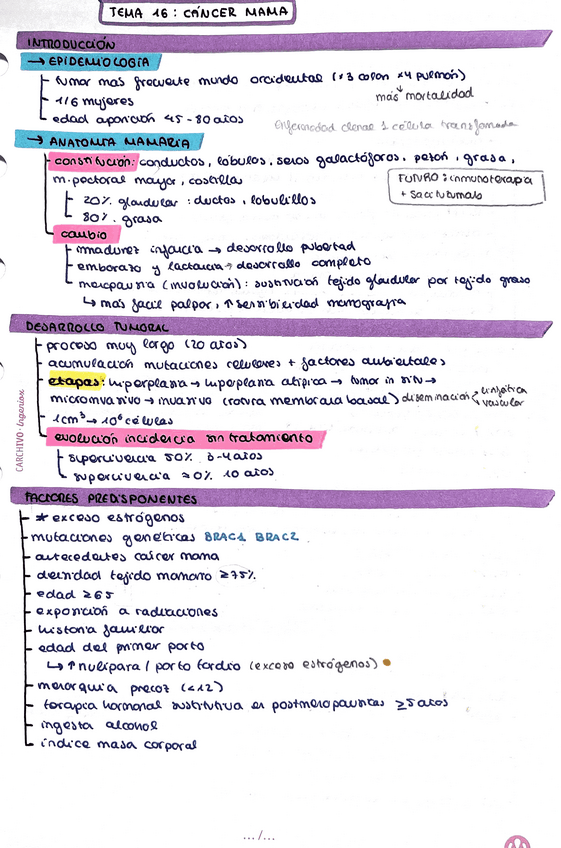 TEMA 16: CÁNCER MAMA
INTRODUCCIÓN
→ EPIDEMIOLOGÍA
tumor mas frecuente mundo occidental (×3 colon ×4 pulmón)
más mortalidad
1/6 mujeres
edad aparición 45-80 años
Enfermedad clonal 1 célula transformada
→ ANATOMÍA MAMARIA
constitución: conductos, lóbulos, senos galactóforos, pezón, grasa,
m. pectoral mayor, costillas
FUTURO: inmunoterapia
+ Sacitutumab
20% glandular: ductos, lobulillos
80% grasa
cambio
inmadurez infancia → desarrollo pubertad
embarazo y lactancia → desarrollo completo
menopausia (involución): sustitución tejido glandular por tejido graso
↳ más facil palpar, ↑ sensibilidad mamografía
DESARROLLO TUMORAL
proceso muy largo (20 años)
acumulación mutaciones celulares + factores ambientales
etapas: hiperplasia → hiperplasia atípica → tumor in situ →
microinvasivo → invasivo (rotura membrana basal) diseminación < linfática
vascular
1cm³ → 10⁶ células
evolución incidencia sin tratamiento
supervivencia 50% 3-4 años
supervivencia 20% 10 años
FACTORES PREDISPONENTES
* exceso estrógenos
mutaciones genéticas BRAC1 BRAC2
antecedentes cáncer mama
densidad tejido mamario ≥75%
edad ≥65
exposición a radiaciones
historia familiar
edad del primer parto
↳ ↑ nulípara / parto tardío (exceso estrógenos)
menarquia precoz (<12)
terapia hormonal sustitutiva en postmenopausicas ≥5 años
ingesta alcohol
índice masa corporal
.../...